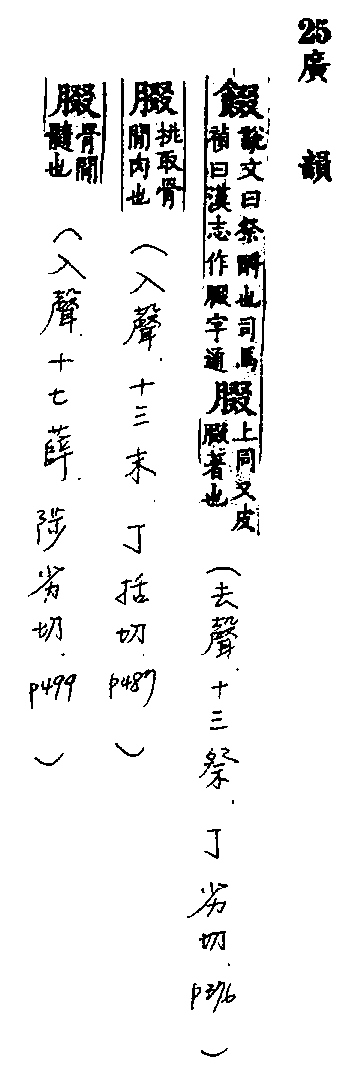 25廣韻
餟說文曰祭酹也司馬禎曰漢志作腏字通腏上同又皮腏著也(去聲.十三祭.丁劣切.p376)
腏挑取骨間肉也(入聲.十三末.丁括切.p487)
腏骨間髓也(入聲.十七薛.陟劣切.p499)